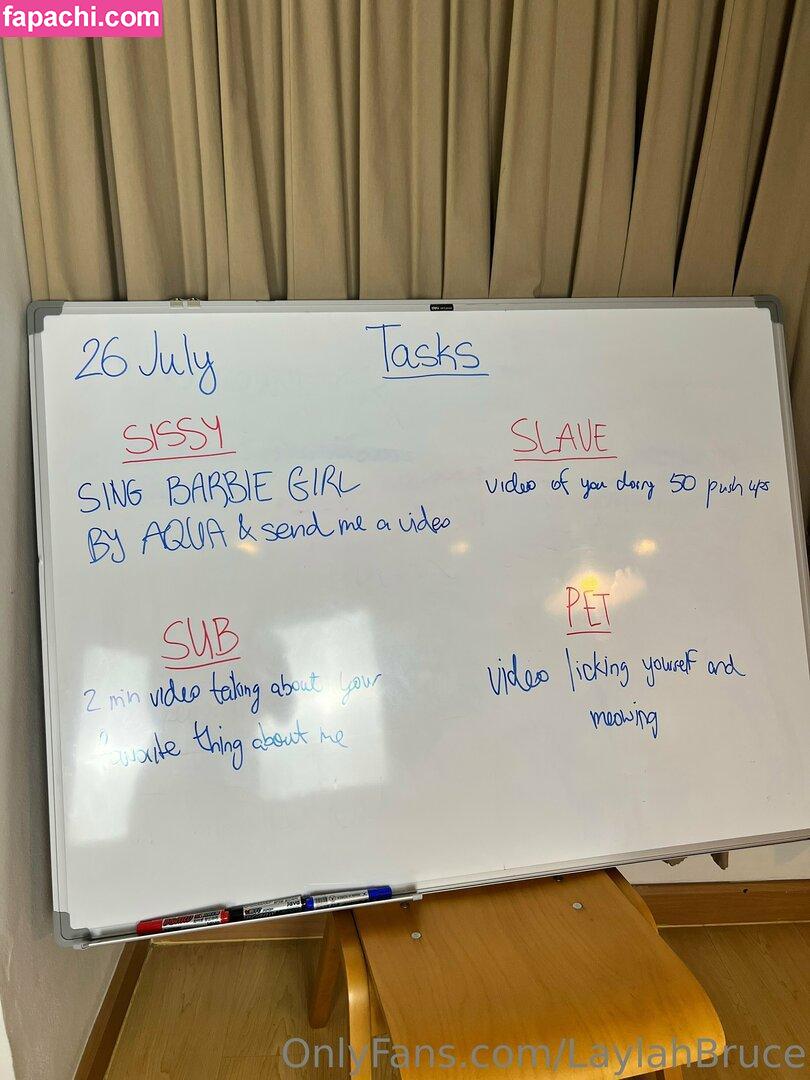 fapachi.com
26 July
Tasks
SISSY
SING BARBIE GIRL
BY AQUA & send me a video
SLAVE
video of you doing 50 push ups
SUB
2 min video talking about your
favourite thing about me
PET
video licking yourself and
meowing
OnlyFans.com/LaylahBruce